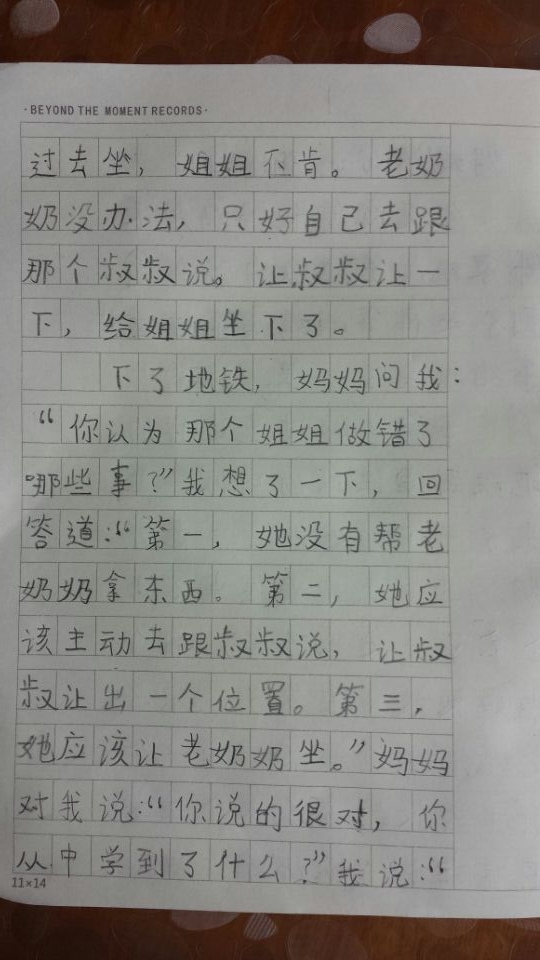 ·BEYOND THE MOMENT RECORDS·
过去坐，姐姐不肯。老奶
奶没办法，只好自己去跟
那个叔叔说。让叔叔让一
下，给姐姐坐下了。
下了地铁，妈妈问我：
“你认为那个姐姐做错了
哪些事？”我想了一下，回
答道：“第一，她没有帮老
奶奶拿东西。第二，她应
该主动去跟叔叔说，让叔
叔让出一个位置。第三，
她应该让老奶奶坐。”妈妈
对我说：“你说的很对，你
从中学到了什么？”我说：“
11×14